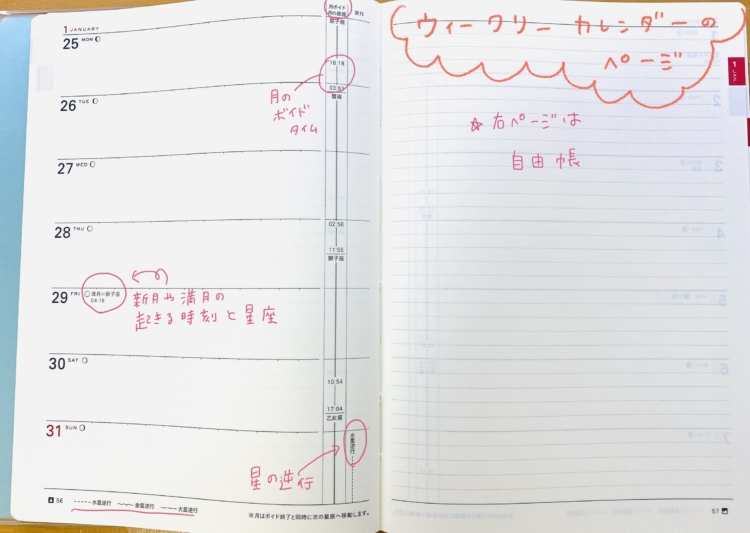 1 JANUARY
25 MON
26 TUE
27 WED
28 THU
29 FRI
満月 in 獅子座
04:16
30 SAT
31 SUN
月ボイド
月の星座
逆行
双子座
16:18
03:53
蟹座
02:56
11:55
獅子座
10:54
17:04
乙女座
水星逆行
月の
ボイド
タイム
新月や満月の
起きる時刻と星座
星の逆行
56
水星逆行 金星逆行 火星逆行
※月はボイド終了と同時に次の星座へ移動します。
ウィークリーカレンダーの
ページ
☆右ページは
自由帳
1
57